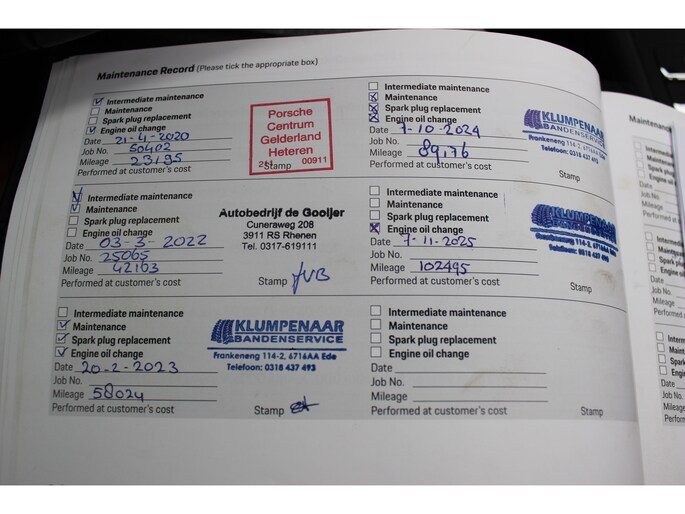 Maintenance Record (Please tick the appropriate box)
Intermediate maintenance
Maintenance
Spark plug replacement
Engine oil change
Date 21-4-2020
Job No. 50402
Mileage 23195
Performed at customer's cost
Porsche
Centrum
Gelderland
Heteren
Stamp 00911
Intermediate maintenance
Maintenance
Spark plug replacement
Engine oil change
Date 03-3-2022
Job No. 25065
Mileage 42103
Performed at customer's cost
Autobedrijf de Gooijer
Cuneraweg 208
3911 RS Rhenen
Tel. 0317-619111
Stamp
Intermediate maintenance
Maintenance
Spark plug replacement
Engine oil change
Date 20-2-2023
Job No.
Mileage 58024
Performed at customer's cost
KLUMPENAAR
BANDENSERVICE
Frankeneng 114-2, 6716AA Ede
Telefoon: 0318 437 493
Stamp
Intermediate maintenance
Maintenance
Spark plug replacement
Engine oil change
Date 7-10-2024
Job No.
Mileage 89176
Performed at customer's cost
KLUMPENAAR
BANDENSERVICE
Frankeneng 114-2, 6716AA Ede
Telefoon: 0318 437 493
Stamp
Intermediate maintenance
Maintenance
Spark plug replacement
Engine oil change
Date 7-11-2025
Job No.
Mileage 102495
Performed at customer's cost
KLUMPENAAR
Telefoon: 0318 437 493
Stamp
Intermediate maintenance
Maintenance
Spark plug replacement
Engine oil change
Date
Job No.
Mileage
Performed at customer's cost
Stamp
Maintenance
Date
Job No.
Mileage
Performed
Date
Job No.
Mileage
Performed
Date
Job No.
Mileage
Performed